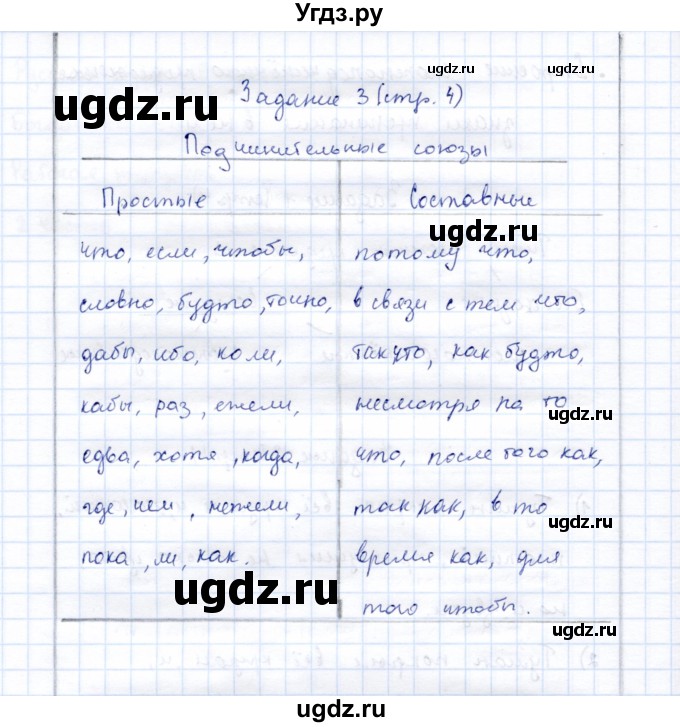 Угдз.ру
ugdz.ru
ugdz.ru
ugdz.ru
Задание 3 (стр. 4)
Подчинительные союзы
Простые Составные
ugdz.ru
что, если, чтобы, потому что,
словно, будто, точно, в связи с тем что,
дабы, ибо, коли, так что, как будто,
кабы, раз, ежели, несмотря на то
ugdz.ru
едва, хотя, когда, что, после того как,
где, чем, нежели, так как, в то
ugdz.ru
пока, ли, как. время как, для
ugdz.ru
того чтобы.
ugdz.ru
Угдз.ру